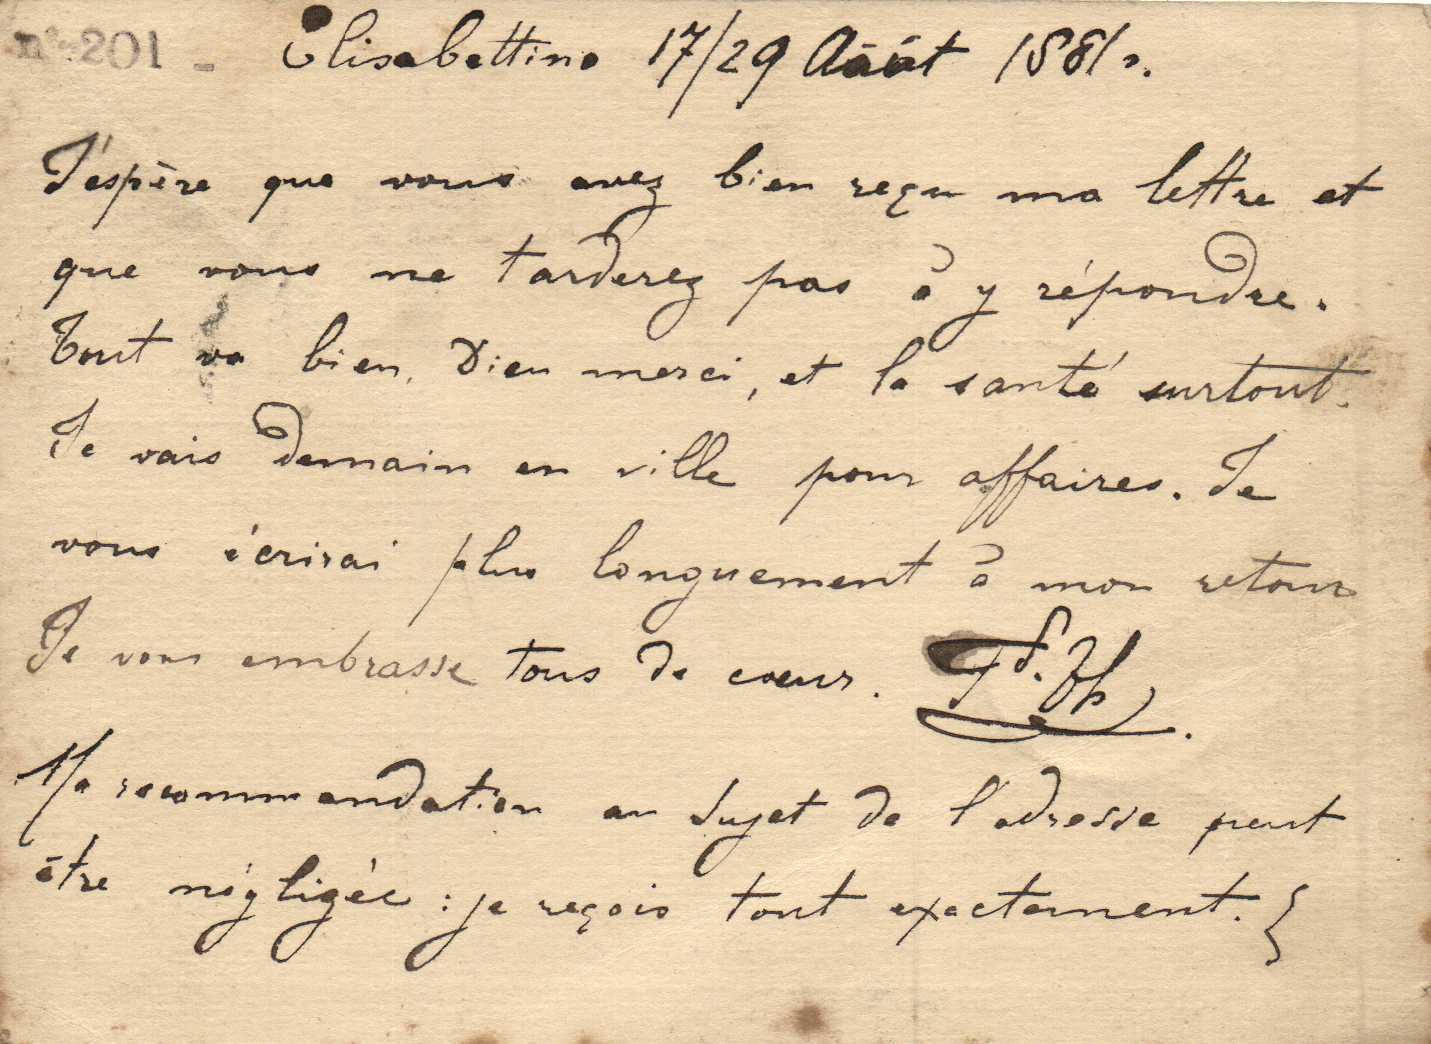 nº 201 - Elisabettino 17/29 Août 1881.
J'espère que vous avez bien reçu ma lettre et
que vous ne tarderez pas à y répondre.
Tout va bien, Dieu merci, et la santé surtout.
Je vais demain en ville pour affaires. Je
vous écrirai plus longuement à mon retour
Je vous embrasse tous de cœur.
Ma recommandation au sujet de l'adresse peut
être négligée : je reçois tout exactement.